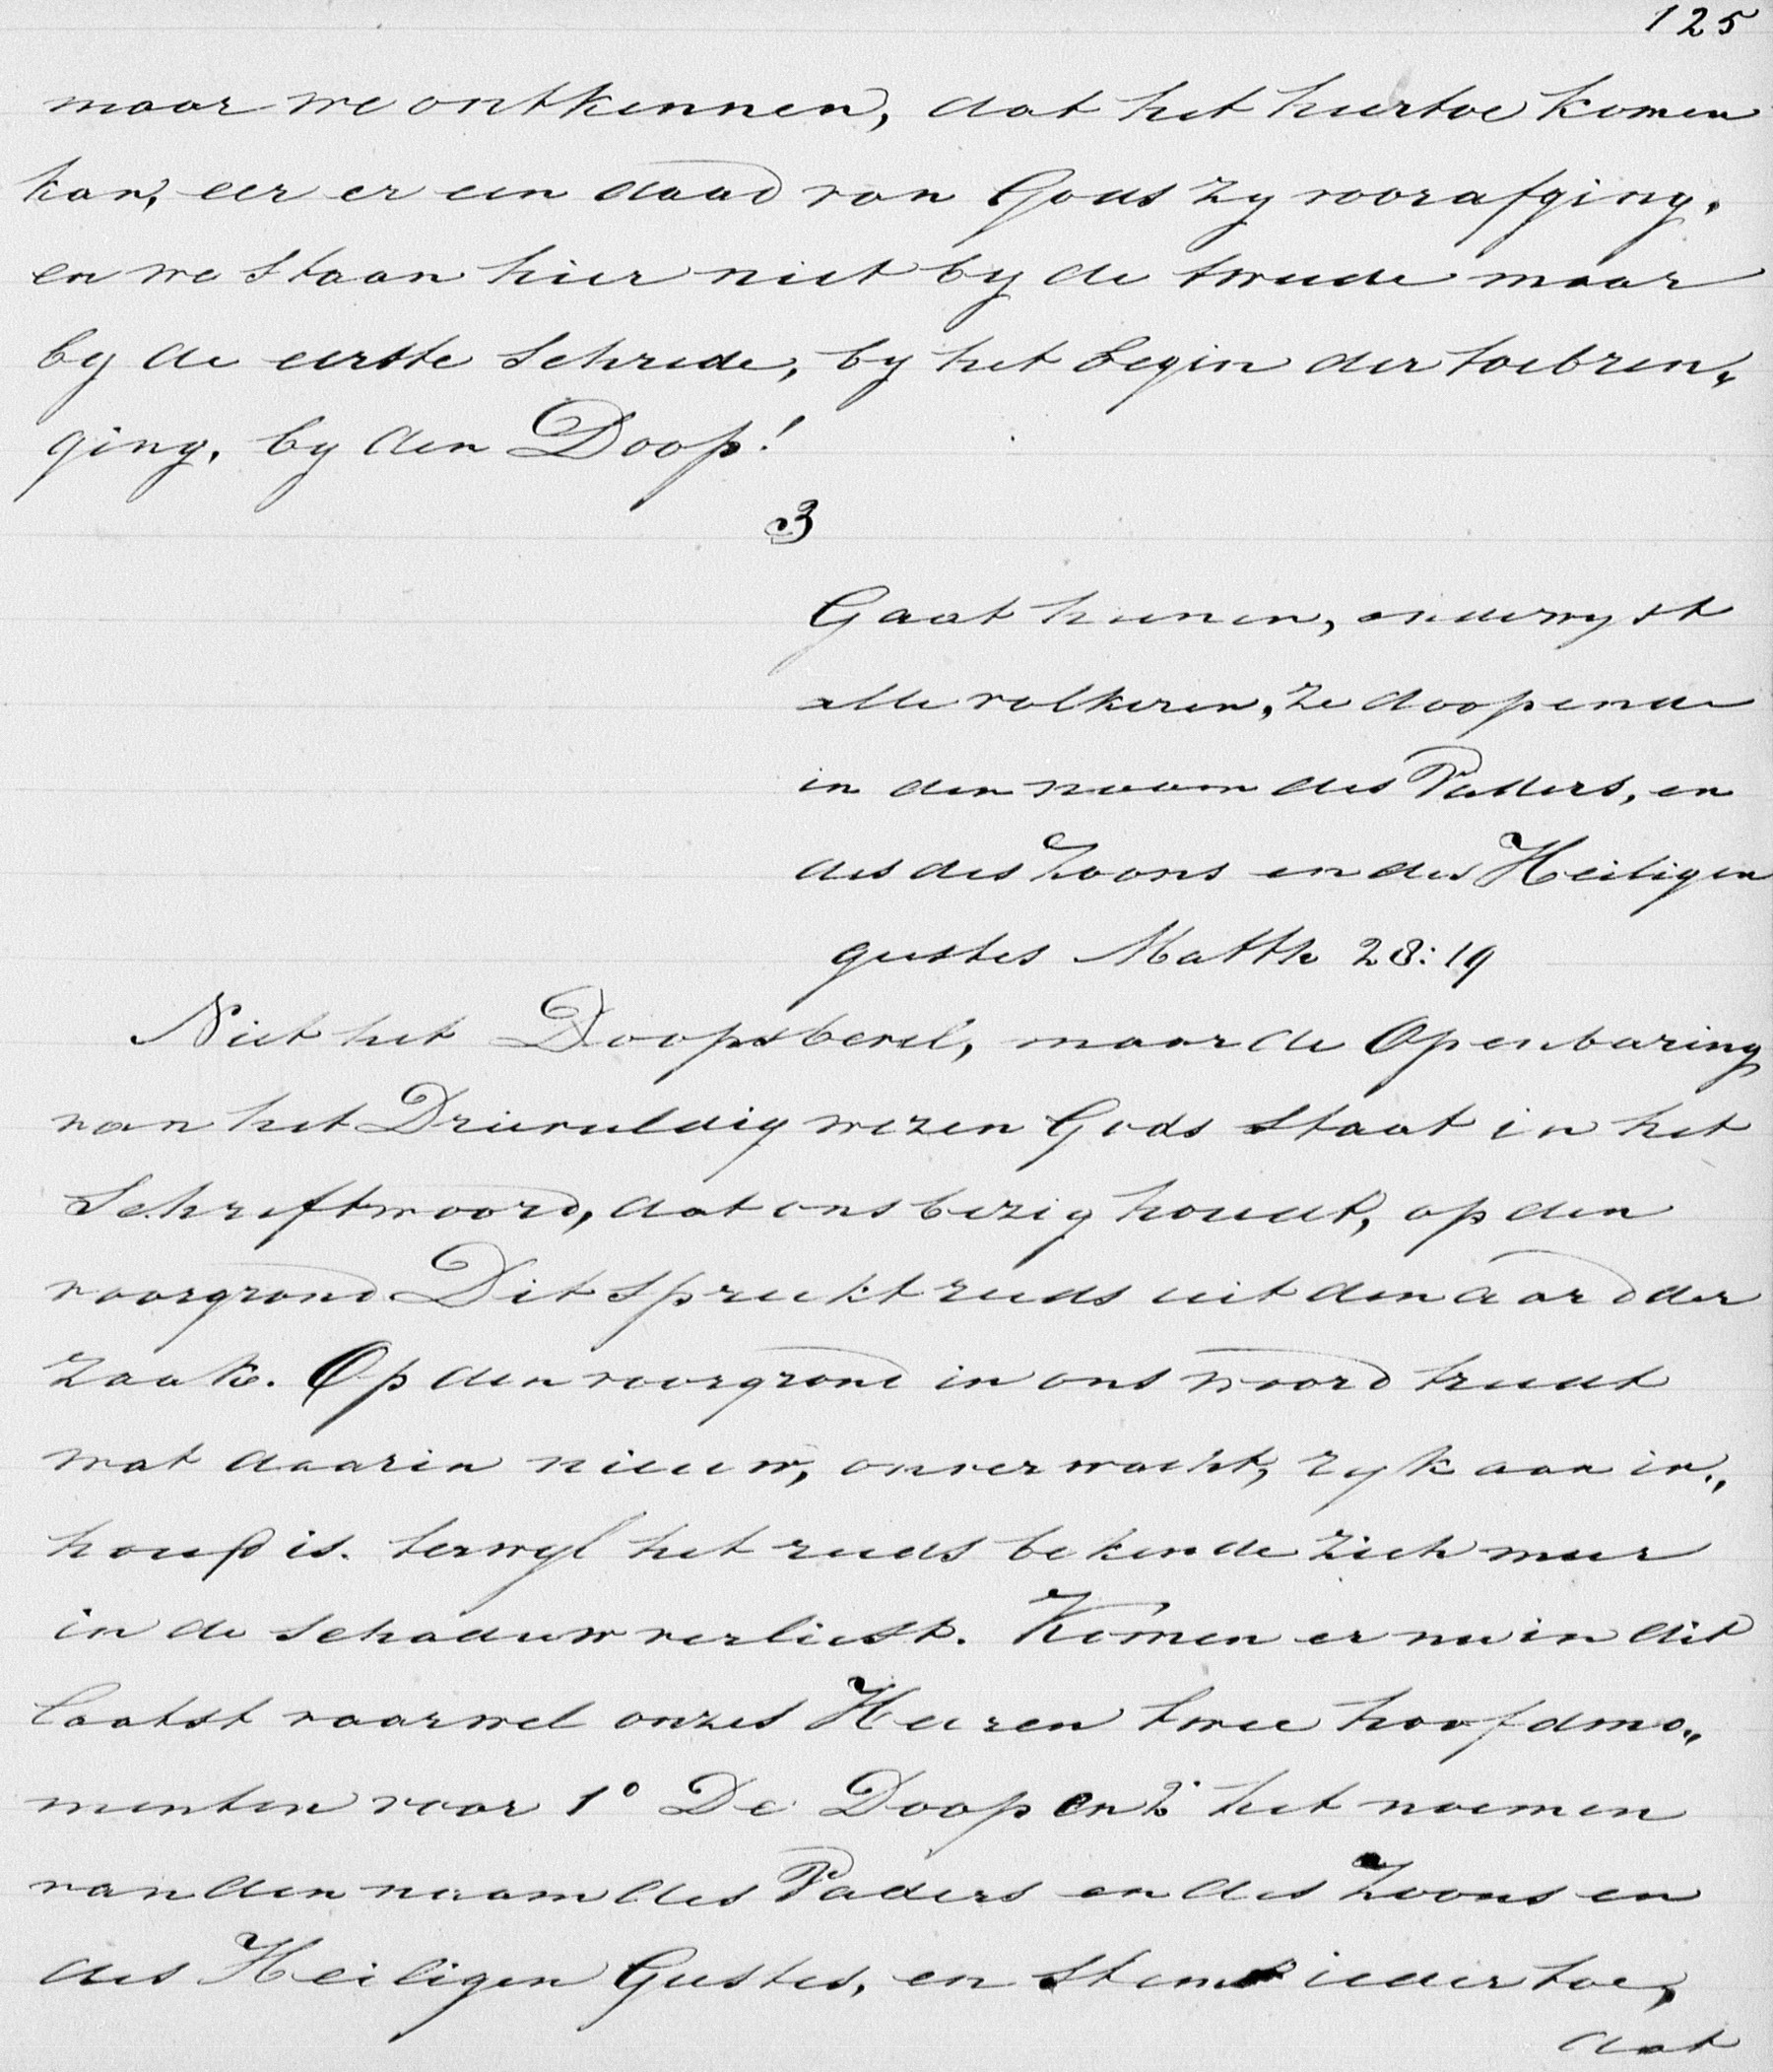 125
maar we ontkennen, dat het hiertoe komen
kan, eer er een daad van Gods zy voorafging,
en we staan hier niet by de tweede maar
by de eerste schrede, by het begin der toebren„
ging, by den Doop!
3
Gaat henen, onderwyst
alle volkeren, ze doopende
in den naam des Vaders, en
des des Zoons en des Heiligen
geestes Matth 28:19
Niet het Doopsbevel, maar de Openbaring
van het Drievuldig wezen Gods staat in het
Schriftwoord, dat ons bezig houdt, op den
voorgrond Dit spreekt reeds uit den aard der
zaak. Op den voorgrond in ons woord treedt
wat daarin nieuw, onverwacht, ryk aan in„
houd is. terwyl het reeds bekende zich meer
in de schaduw verliest. Komen er nu in dit
laatst vaarwel onzes Heeren twee hoofdmo„
menten voor 1° De Doop en 2° het noemen
van den naam des Vaders en des Zoons en
des Heiligen Geestes, en stemt ieder toe,
dat